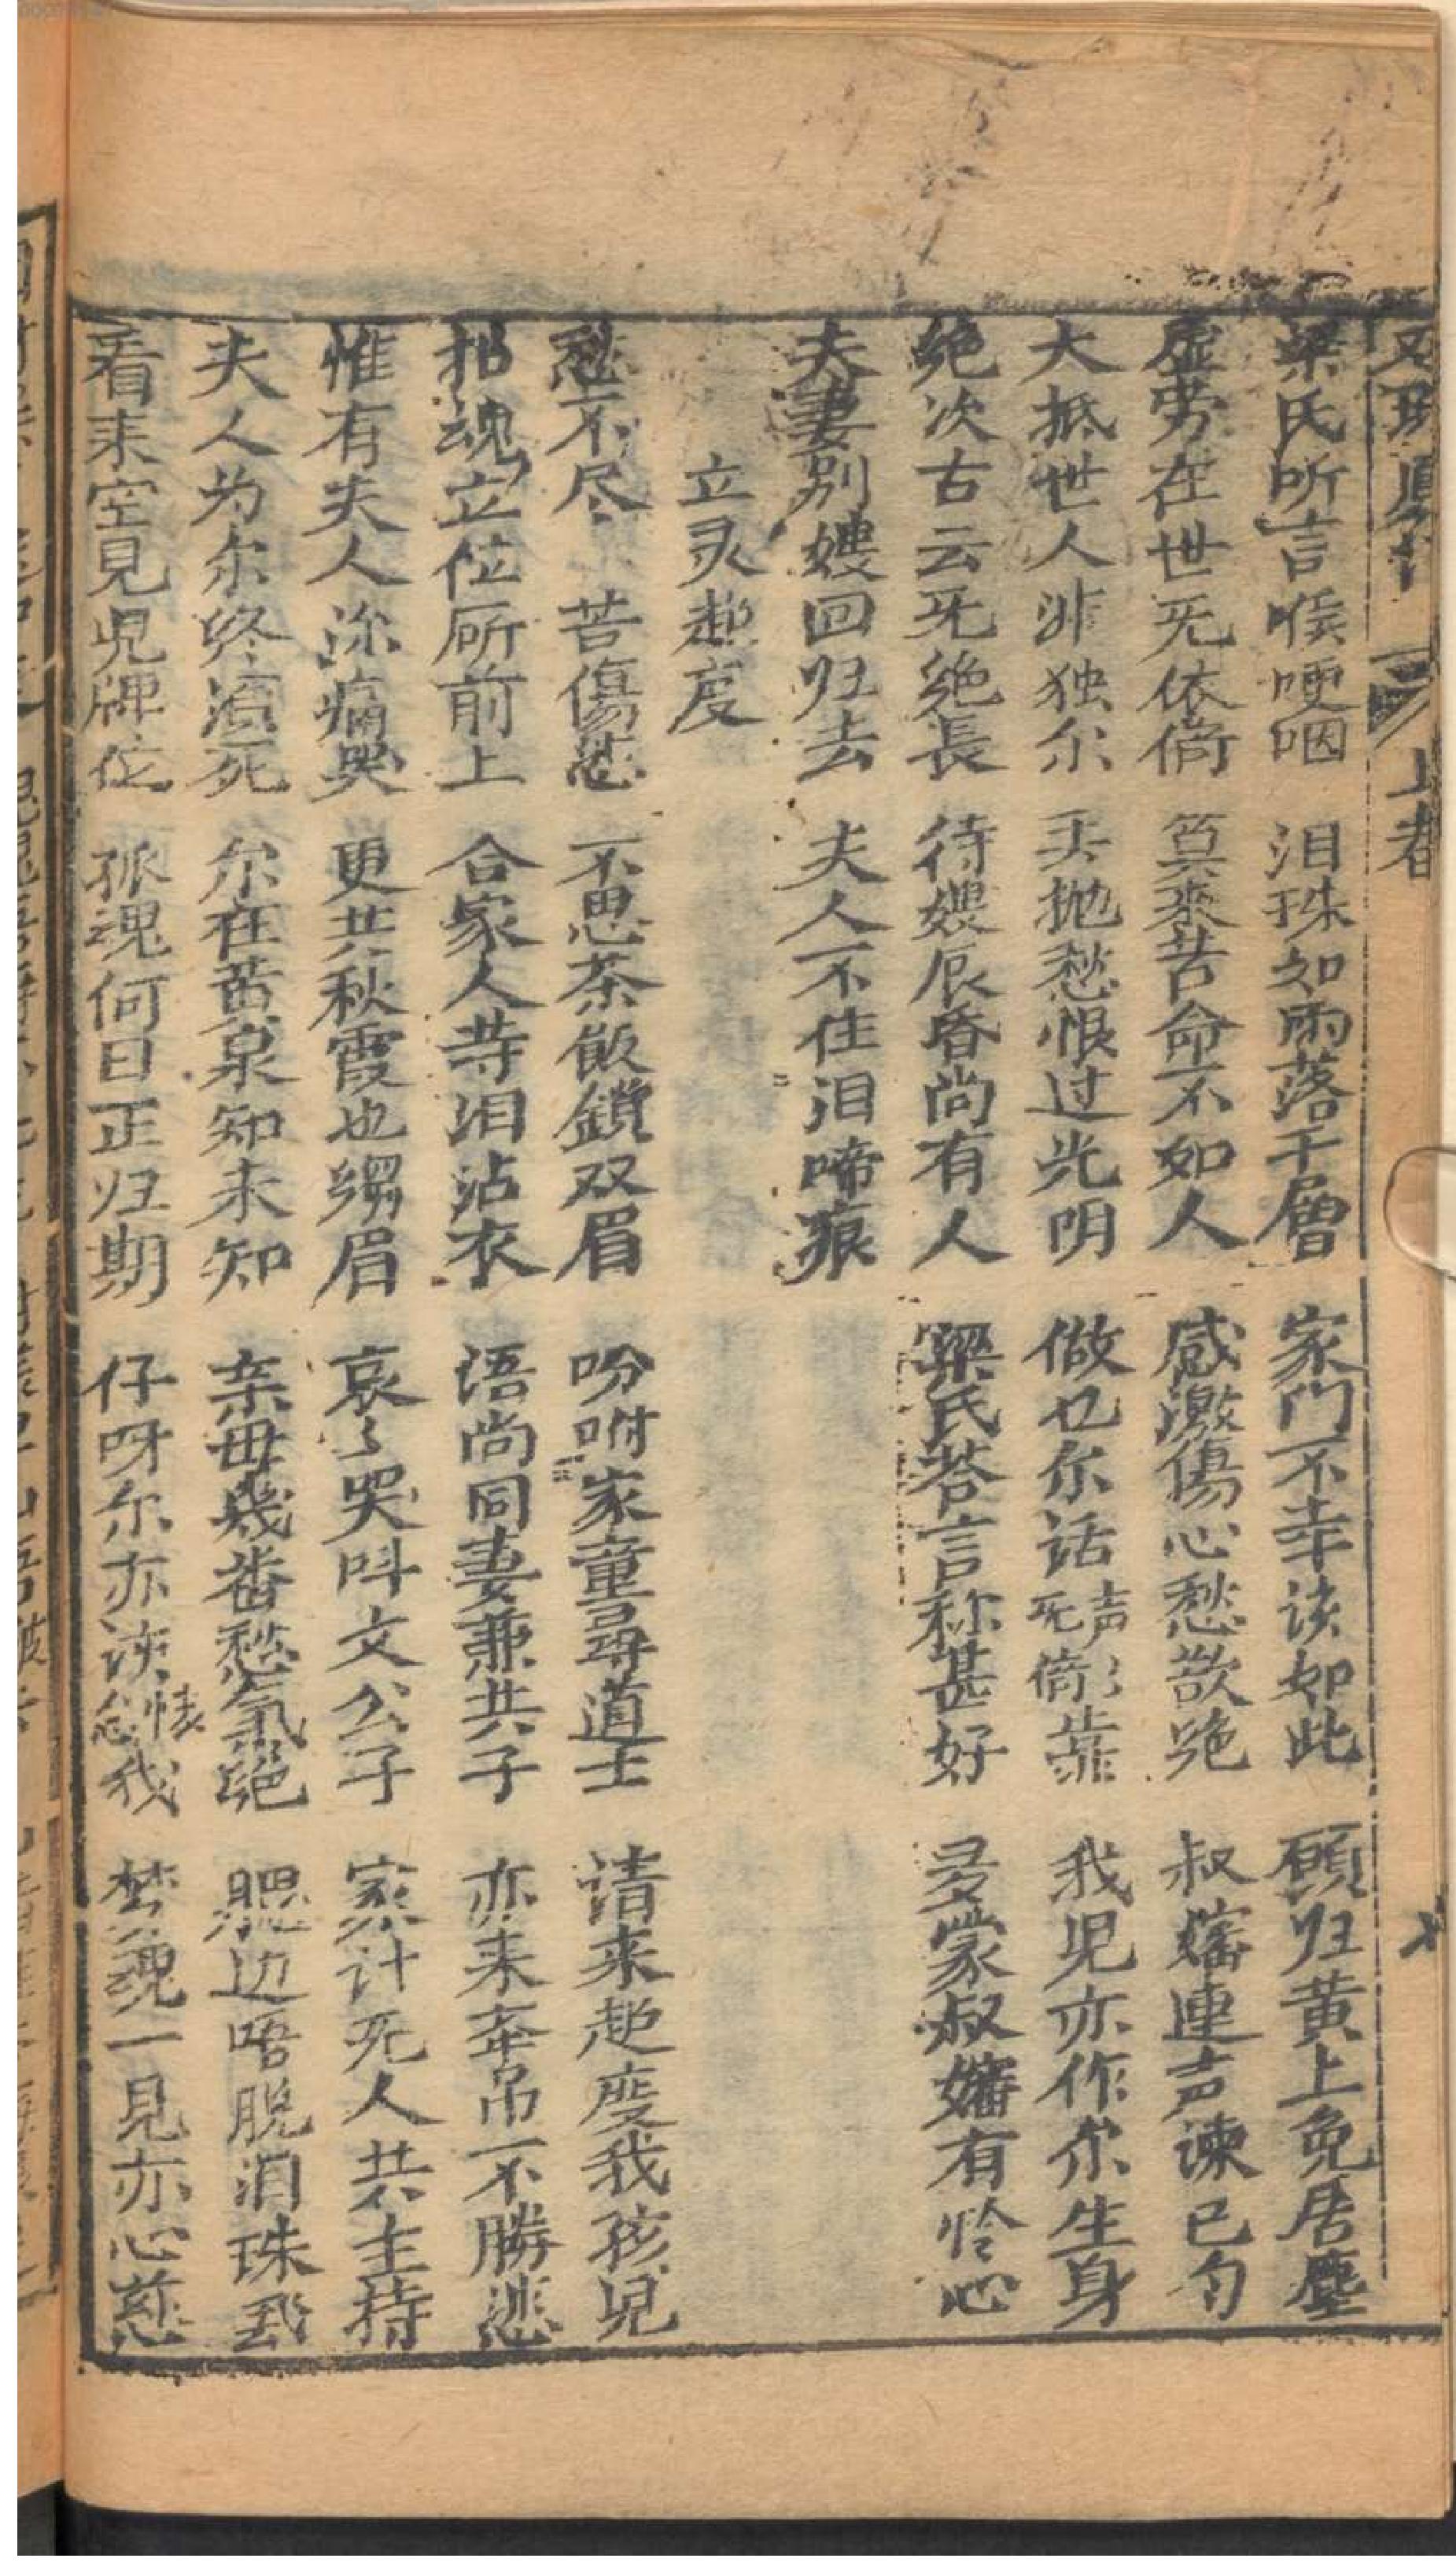 梁氏听言喉哽咽 泪珠如雨落千層 家门不幸该如此 願归黄上免居塵
虚劳在世无依倚 算來苦命不如人 感激傷心愁欲絶 叔嬸連声諫已匀
大抵世人非独尔 丢抛愁恨过光阴 做乜尔话无声无倚靠 我児亦作尔生身
绝次古云死绝長 待嫂辰昏尚有人 梁氏荅言称甚好 多蒙叔嬸有怜心
夫妻别嫂回归去 夫人不住泪啼痕
立灵超度
愁不尽 苦傷悲 不思茶飯鎖双眉 吩咐家童尋道士 请来超度我孩児
招魂立位厛前上 合家人等泪沾衣 语尚同妻兼共子 亦来奔吊不勝悲
惟有夫人深痛哭 更共秋霞也縐眉 哀了哭呌文公子 家计无人共主持
夫人为尔终須死 尔在黄泉知未知 亲母幾番愁氣絶 腮边唔脱泪珠
看来空見児牌位 孤魂何日正归期 仔呀尔亦该 我 梦魂一見亦心慈
上卷